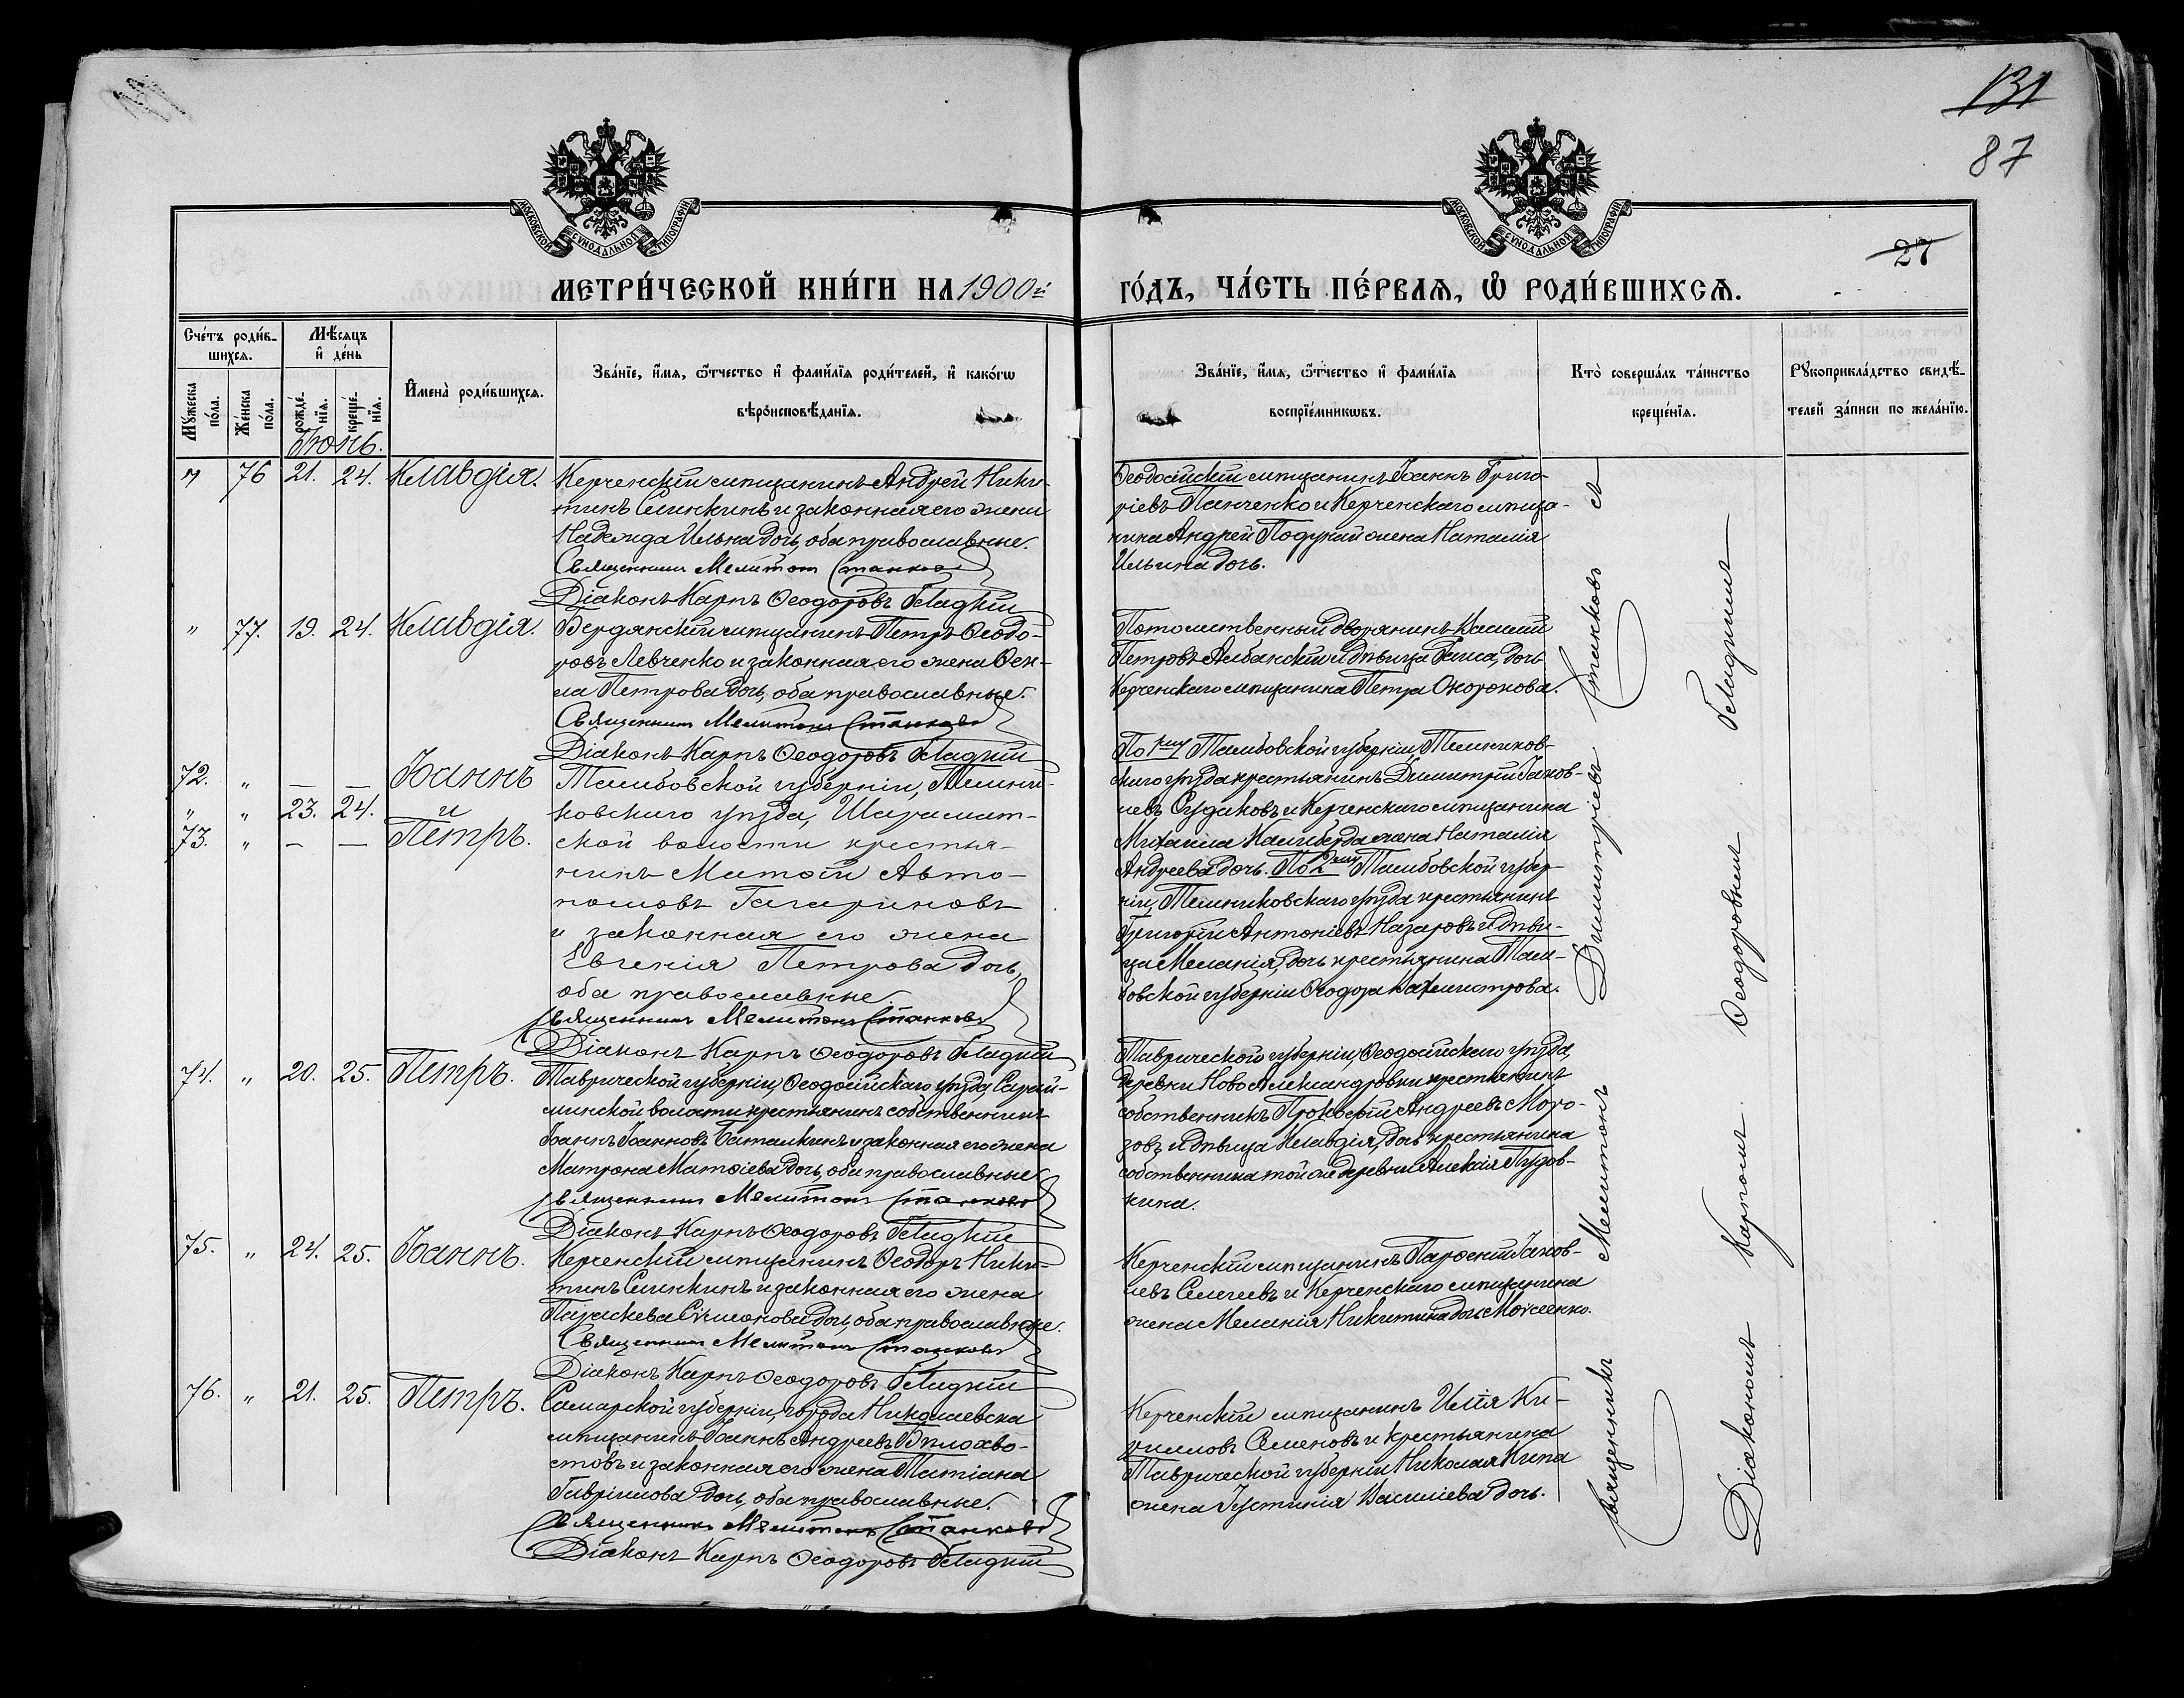 131
87
27
МОСКОВСКОЙ СѴНОДАЛЬНОЙ ТИПОГРАФІИ
МОСКОВСКОЙ СѴНОДАЛЬНОЙ ТИПОГРАФІИ
МЕТРИ́ЧЕСКОЙ КНИ́ГИ НА 1900й
ГО́ДЪ, ЧА́СТЬ ПЕ́РВАѦ, Ѽ РОДИ́ВШИХСѦ.
Сче́тъ роди́в-
шихсѧ.
Мꙋ́жеска по́ла.
Же́нска по́ла.
Мѣ́сѧцъ
и҆ де́нь
рожде́-нїѧ.
креще́-нїѧ.
Іюнь.
И҆мена̀ роди́вшихсѧ.
Зва́нїе, и҆́мѧ, ѻ҆́тчество и҆ фами́лїѧ роди́телей, и҆ како́гѡ
вѣроисповѣ́данїѧ.
Зва́нїе, и҆́мѧ, ѻ҆́тчество и҆ фами́лїѧ
воспрїе́мникѡвъ.
Кто̀ соверша́лъ та́инство
креще́нїѧ.
Рꙋкоприкла́дство свидѣ́-
телей за́писи по жела́нїю.
" 76 21. 24. Клавдія.
Керченскій мѣщанинъ Андрей Ники-
тинъ Симкинъ и законная его жена
Надежда Ильина дочь, оба православные.
Священникъ Мелитонъ Станковъ
Діаконъ Карпъ Ѳеодоровъ Гладкій
Ѳеодосійскій мѣщанинъ Іоаннъ Григо-
ріевъ Панченко и Керченскаго мѣща-
нина Андрей жена Наталія
Ильина дочь.
" 77. 19. 24. Клавдія.
Бердянскій мѣщанинъ Петръ Ѳеодо-
ровъ Левченко и законная его жена Ѳек-
ла Петрова дочь, оба православные.
Священникъ Мелитонъ Станковъ
Діаконъ Карпъ Ѳеодоровъ Гладкій
Потомственный дворянинъ Василій
Петровъ Албанскій и дѣвица Раиса, дочь
Керченскаго мѣщанина Петра
72. " — — Іоаннъ
" " 23. 24. и
73. " — — Петръ.
Тамбовской губерніи, Темни-
ковскаго уѣзда,
ской волости крестья-
нинъ Матѳій Авто-
номовъ Гагариновъ
и законная его жена
Евгенія Петрова дочь,
оба православные.
Священникъ Мелитонъ Станковъ
Діаконъ Карпъ Ѳеодоровъ Гладкій
По 1му Тамбовской губерніи, Темников-
скаго уѣзда крестьянинъ Димитрій Іаков-
левъ Судаковъ и Керченскаго мѣщанина
Михаила Калиберда жена Наталія
Андреева дочь. По 2му Тамбовской губер-
ніи, Темниковскаго уѣзда крестьянинъ
Григорій Антоніевъ Назаровъ и дѣви-
ца Меланія, дочь крестьянина Там-
бовской губерніи Ѳеодора
74. " 20. 25. Петръ.
Таврической губерніи, Ѳеодосійскаго уѣзда, Сарай-
минской волости крестьянинъ собственникъ
Іоаннъ Іоанновъ Баташкинъ и законная его жена
Матрона Матѳіева дочь, оба православные
Священникъ Мелитонъ Станковъ
Діаконъ Карпъ Ѳеодоровъ Гладкій
Таврической губерніи, Ѳеодосійскаго уѣзда,
деревни Ново Александровки крестьянинъ
собственникъ Прокофій Андреевъ Моро-
зовъ и дѣвица Клавдія, дочь крестьянина
собственника той же деревни Алексія Пудов-
кина.
75. " 24. 25. Іоаннъ.
Керченскій мѣщанинъ Ѳеодоръ Ники-
тинъ Симкинъ и законная его жена
Параскева Симонова дочь, оба православные.
Священникъ Мелитонъ Станковъ
Діаконъ Карпъ Ѳеодоровъ Гладкій
Керченскій мѣщанинъ Парѳеній Іаков-
левъ Селегеевъ и Керченскаго мѣщанина
жена Меланія Никитина дочь Моисеенко.
76. " 21. 25. Петръ.
Самарской губерніи, города Николаевска
мѣщанинъ Іоаннъ Андреевъ Бѣлохво-
стовъ и законная его жена Татіана
Гавріилова дочь, оба православные.
Священникъ Мелитонъ Станковъ
Діаконъ Карпъ Ѳеодоровъ Гладкій
Керченскій мѣщанинъ Илія Ки-
рилловъ Семеновъ и крестьянина
Таврической губерніи Николая Кипа
жена Іустинія Василіева дочь.
Священникъ Мелитонъ Димитріевъ Станковъ съ
Діакономъ Карпомъ Ѳеодоровымъ Гладкимъ